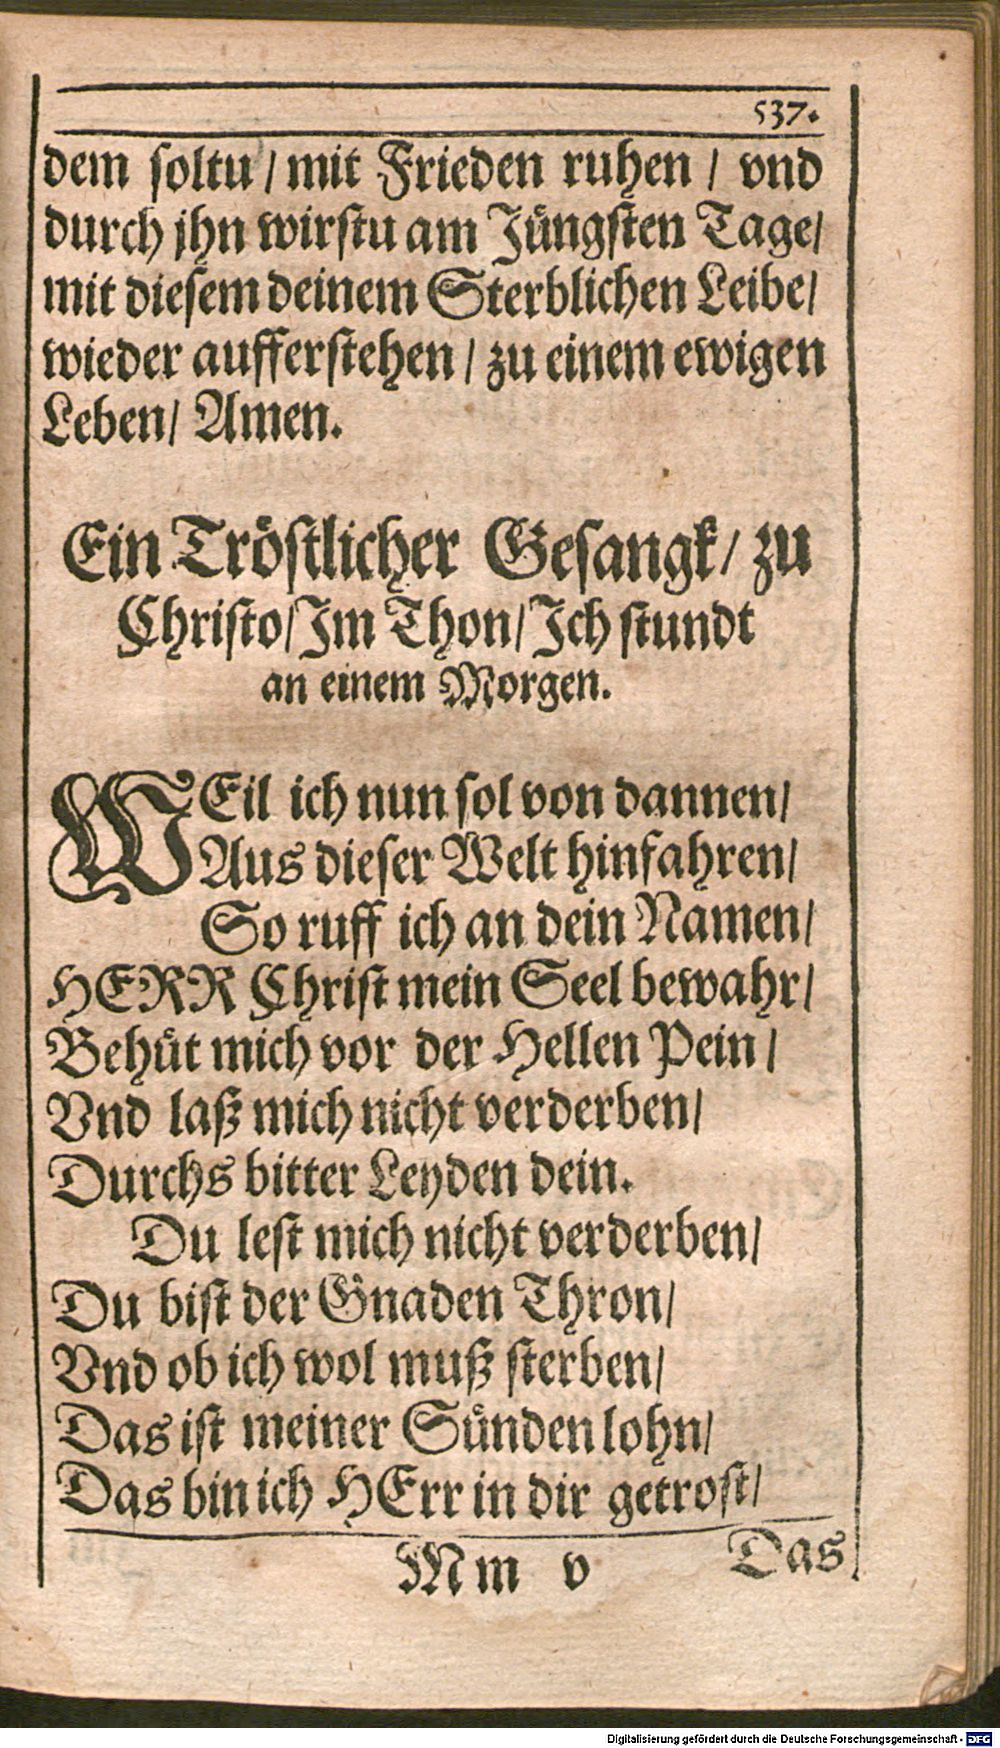 537.
dem soltu / mit Frieden ruhen / vnd
durch jhn wirstu am Jüngsten Tage/
mit diesem deinem Sterblichen Leibe/
wieder aufferstehen / zu einem ewigen
Leben/ Amen.
Ein Tröstlicher Gesangk/ zu
Christo/ Im Thon/ Ich stundt
an einem Morgen.
WEil ich nun sol von dannen/
Aus dieser Welt hinfahren/
So ruff ich an dein Namen/
HERR Christ mein Seel bewahr/
Behüt mich vor der Hellen Pein /
Vnd laß mich nicht verderben/
Durchs bitter Leyden dein.
Du lest mich nicht verderben/
Du bist der Gnaden Thron/
Vnd ob ich wol muß sterben/
Das ist meiner Sünden lohn/
Das bin ich HErr in dir getrost/
Mm v Das
Digitalisierung gefördert durch die Deutsche Forschungsgemeinschaft - DFG